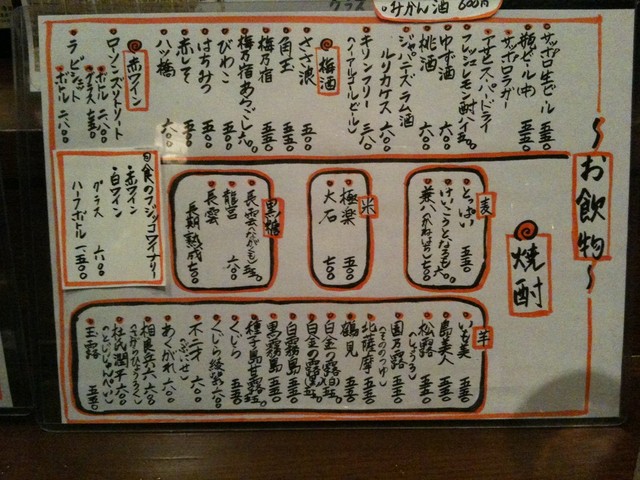 みかん酒 600円
グラス
〜お飲物〜
サッポロ生ビール 五五〇
瓶ビール(中) 五五〇
サッポロラガー
アサヒスーパードライ
フレッシュレモン酎ハイ 五五〇
ゆず酒 六〇〇
桃酒 六〇〇
ジャパニーズラム酒
ルリカケス 六〇〇
キリンフリー 三八〇
(ノンアルコールビール)
梅酒
ささ浪 五〇〇
角玉 五五〇
梅乃宿 五五〇
梅乃宿あらごし 六〇〇
びわこ 五五〇
はちみつ 五五〇
赤しそ 五五〇
八ッ橋 六〇〇
赤ワイン
ローソン・ズリトリート
グラス 五五〇
ボトル 二八〇〇
ラピッシュ
ボトル 二八〇〇
焼酎
麦
とっぱい 五五〇
けいこうとなるも 六〇〇
兼八(かねはち) 七〇〇
米
極楽 五〇〇
大石 七〇〇
黒糖
長雲(ながくも) 五五〇
龍宮 六〇〇
長雲
長期熟成 七〇〇
フジッコワイナリー
赤ワイン
白ワイン
グラス 六〇〇
ハーフボトル 一五〇〇
芋
いも美 五五〇
島美人 五五〇
松露 五五〇
(しょうろ)
園乃露 五五〇
(そののつゆ)
北薩摩 五五〇
鶴見 五五〇
白金の露 白 五五〇
白金の露 黒 五五〇
白霧島 五五〇
黒霧島 五五〇
種子島甘露 五五〇
くじら 五五〇
くじら綾紫 六〇〇
不二才 六〇〇
(ぶにせ)
あくがれ 六〇〇
相良兵六 六〇〇
(さがらひょうろく)
杜氏潤平 六〇〇
(とうじじゅんぺい)
玉露 五五〇